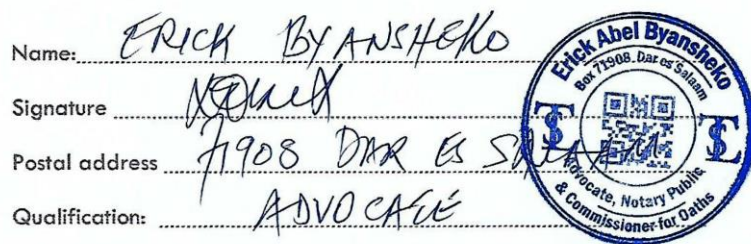 Name: ERICK BYANSHEKO
Signature
Postal address 71908 DAR ES SALAAM
Qualification: ADVOCATE
Erick Abel Byansheko
Box 71908, Dar es Salaam
TSL
TSL
Advocate, Notary Public
& Commissioner for Oaths